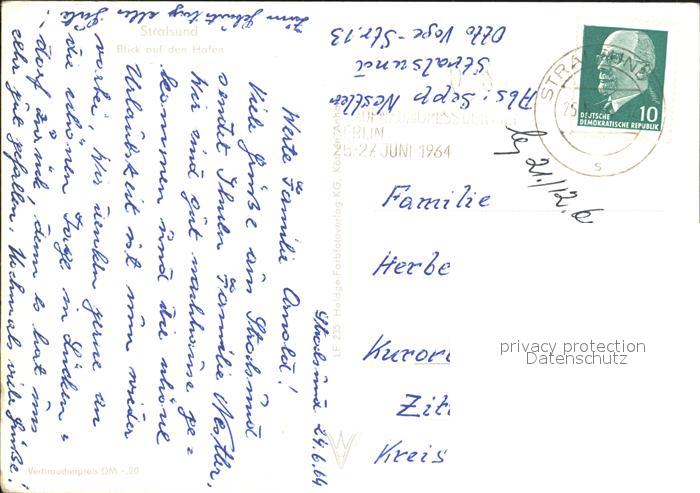 Stralsund
Blick auf den Hafen
Stralsund 24.6.64
Werte Familie Arnold!
Viele Grüße aus Stralsund
sendet Ihnen Familie Nestler.
Wir sind gut nachhause ge=
kommen und die schöne
Urlaubszeit ist nun wieder
vorbei. Wir denken gerne an
die schönen Tage in Lücken=
dorf zurück, denn es hat uns
sehr gut gefallen. Nochmals viele Grüße!
Zum Geburtstag alles Gute
Verbraucherpreis DM -,20
LF 235 Heldge-Farbfotoverlag KG, Köthen/Anhalt
Abs: Sepp Nestler
Stralsund
Otto Voge-Str. 13
BERLIN
25.-27. JUNI 1964
STRALSUND
25
s
10
DEUTSCHE
DEMOKRATISCHE REPUBLIK
21./12.6
Familie
Herbe
Kurort
Zitt
Kreis
privacy protection
Datenschutz